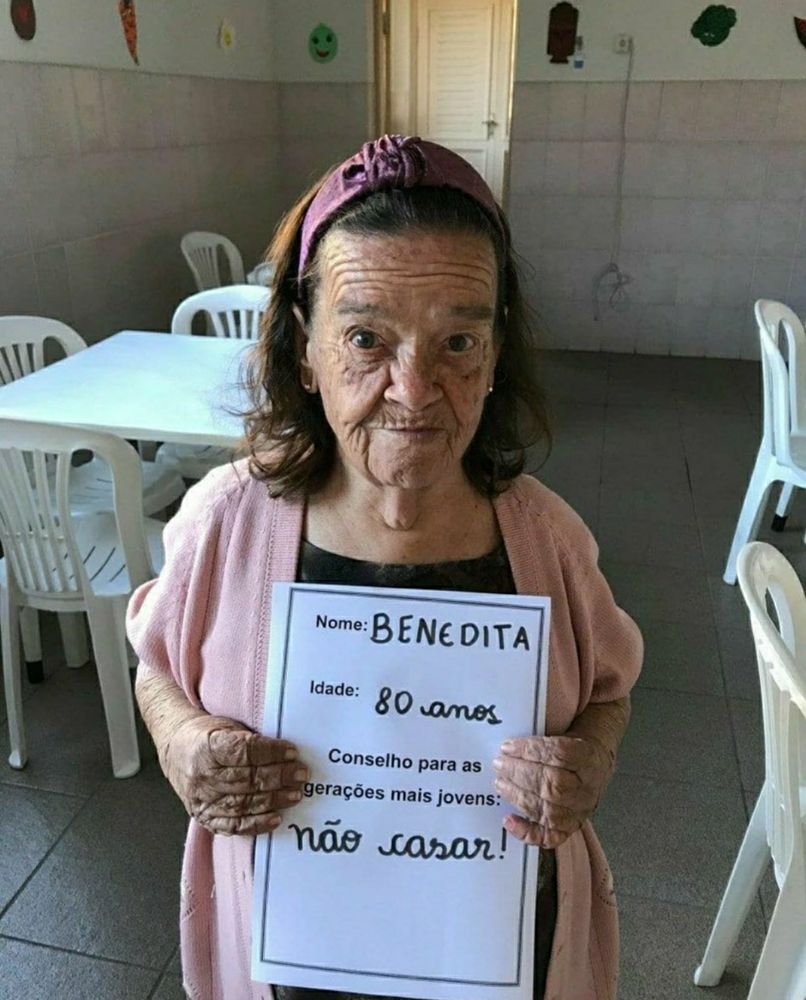 Nome: BENEDITA
Idade: 80 anos
Conselho para as
gerações mais jovens:
não casar!